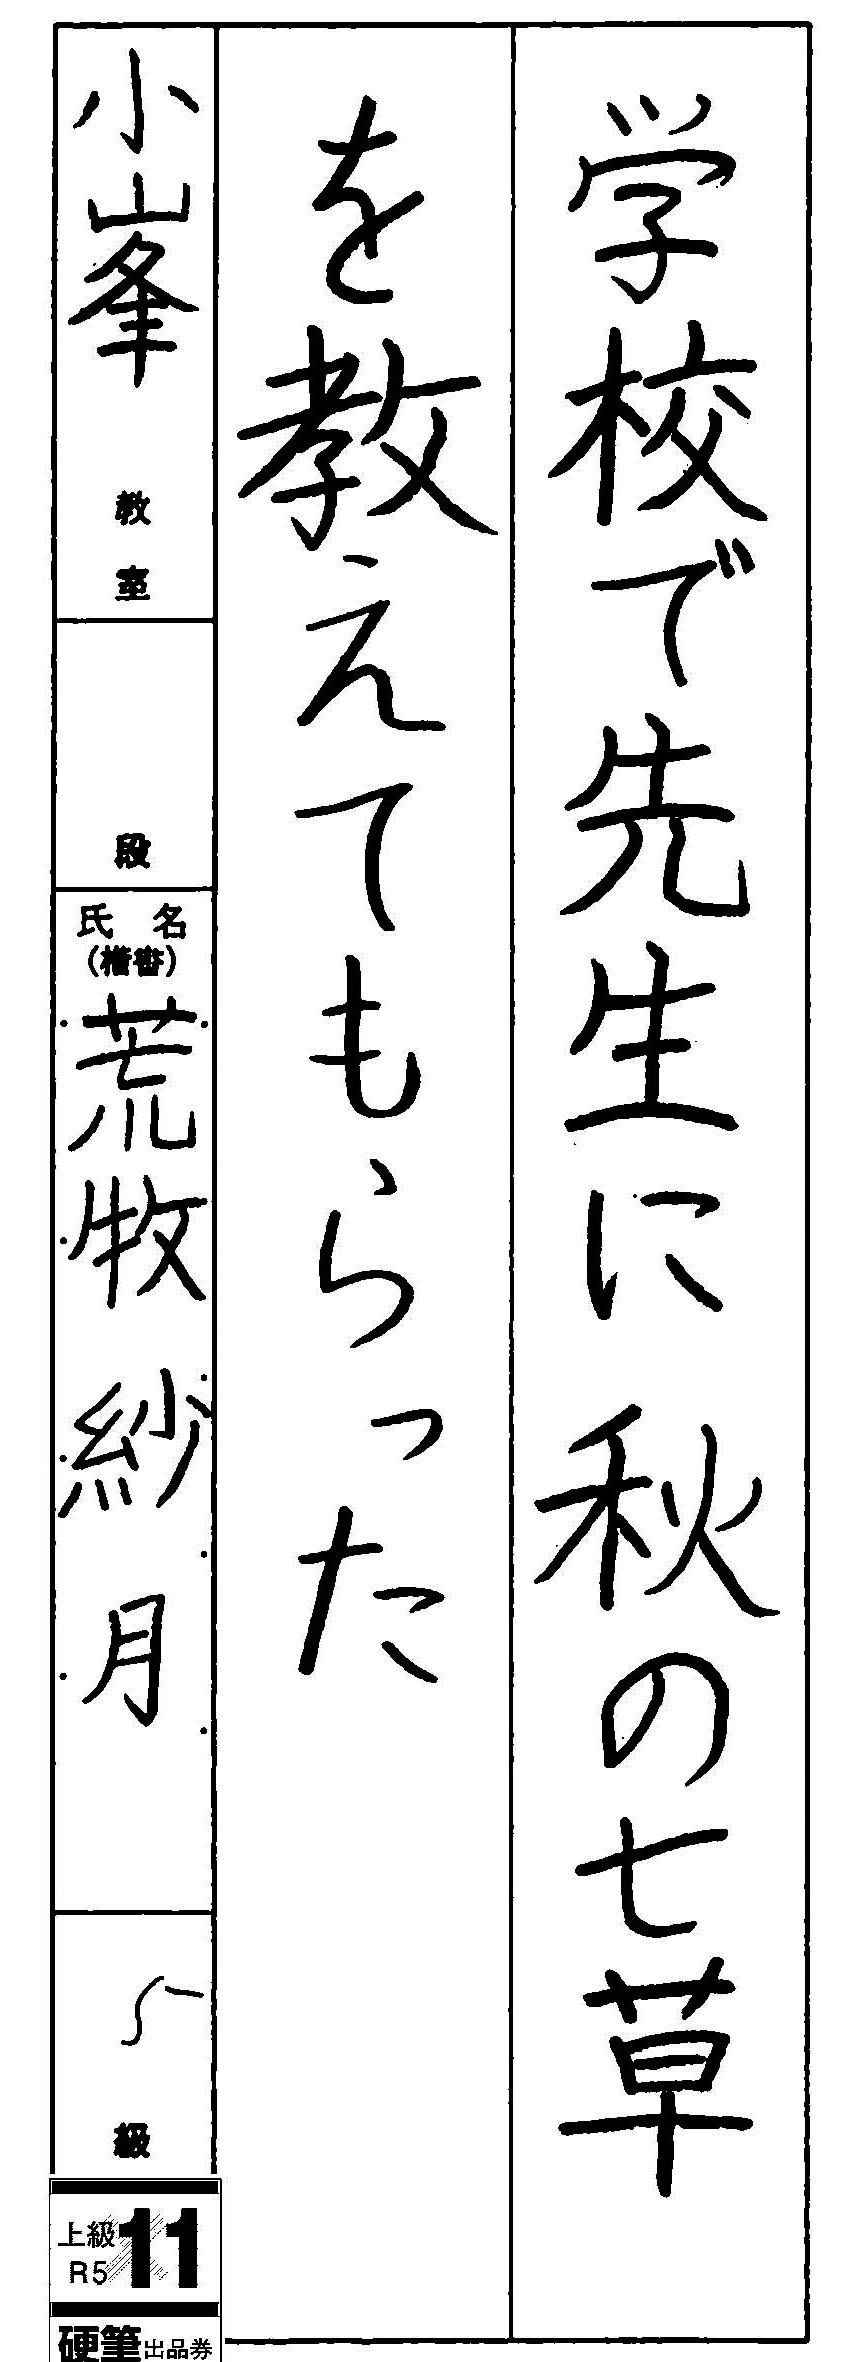 学校で先生に秋の七草
を教えてもらった
小峯
教室
段
氏名
(楷書)
荒牧紗月
5
級
上級
R5
11
硬筆出品券